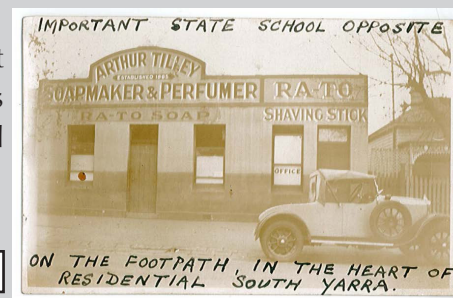 IMPORTANT STATE SCHOOL OPPOSITE
ARTHUR TILLEY
SOAPMAKER & PERFUMER RA-TO
RA-TO SOAP SHAVING STICK
OFFICE
ON THE FOOTPATH, IN THE HEART OF
RESIDENTIAL SOUTH YARRA.